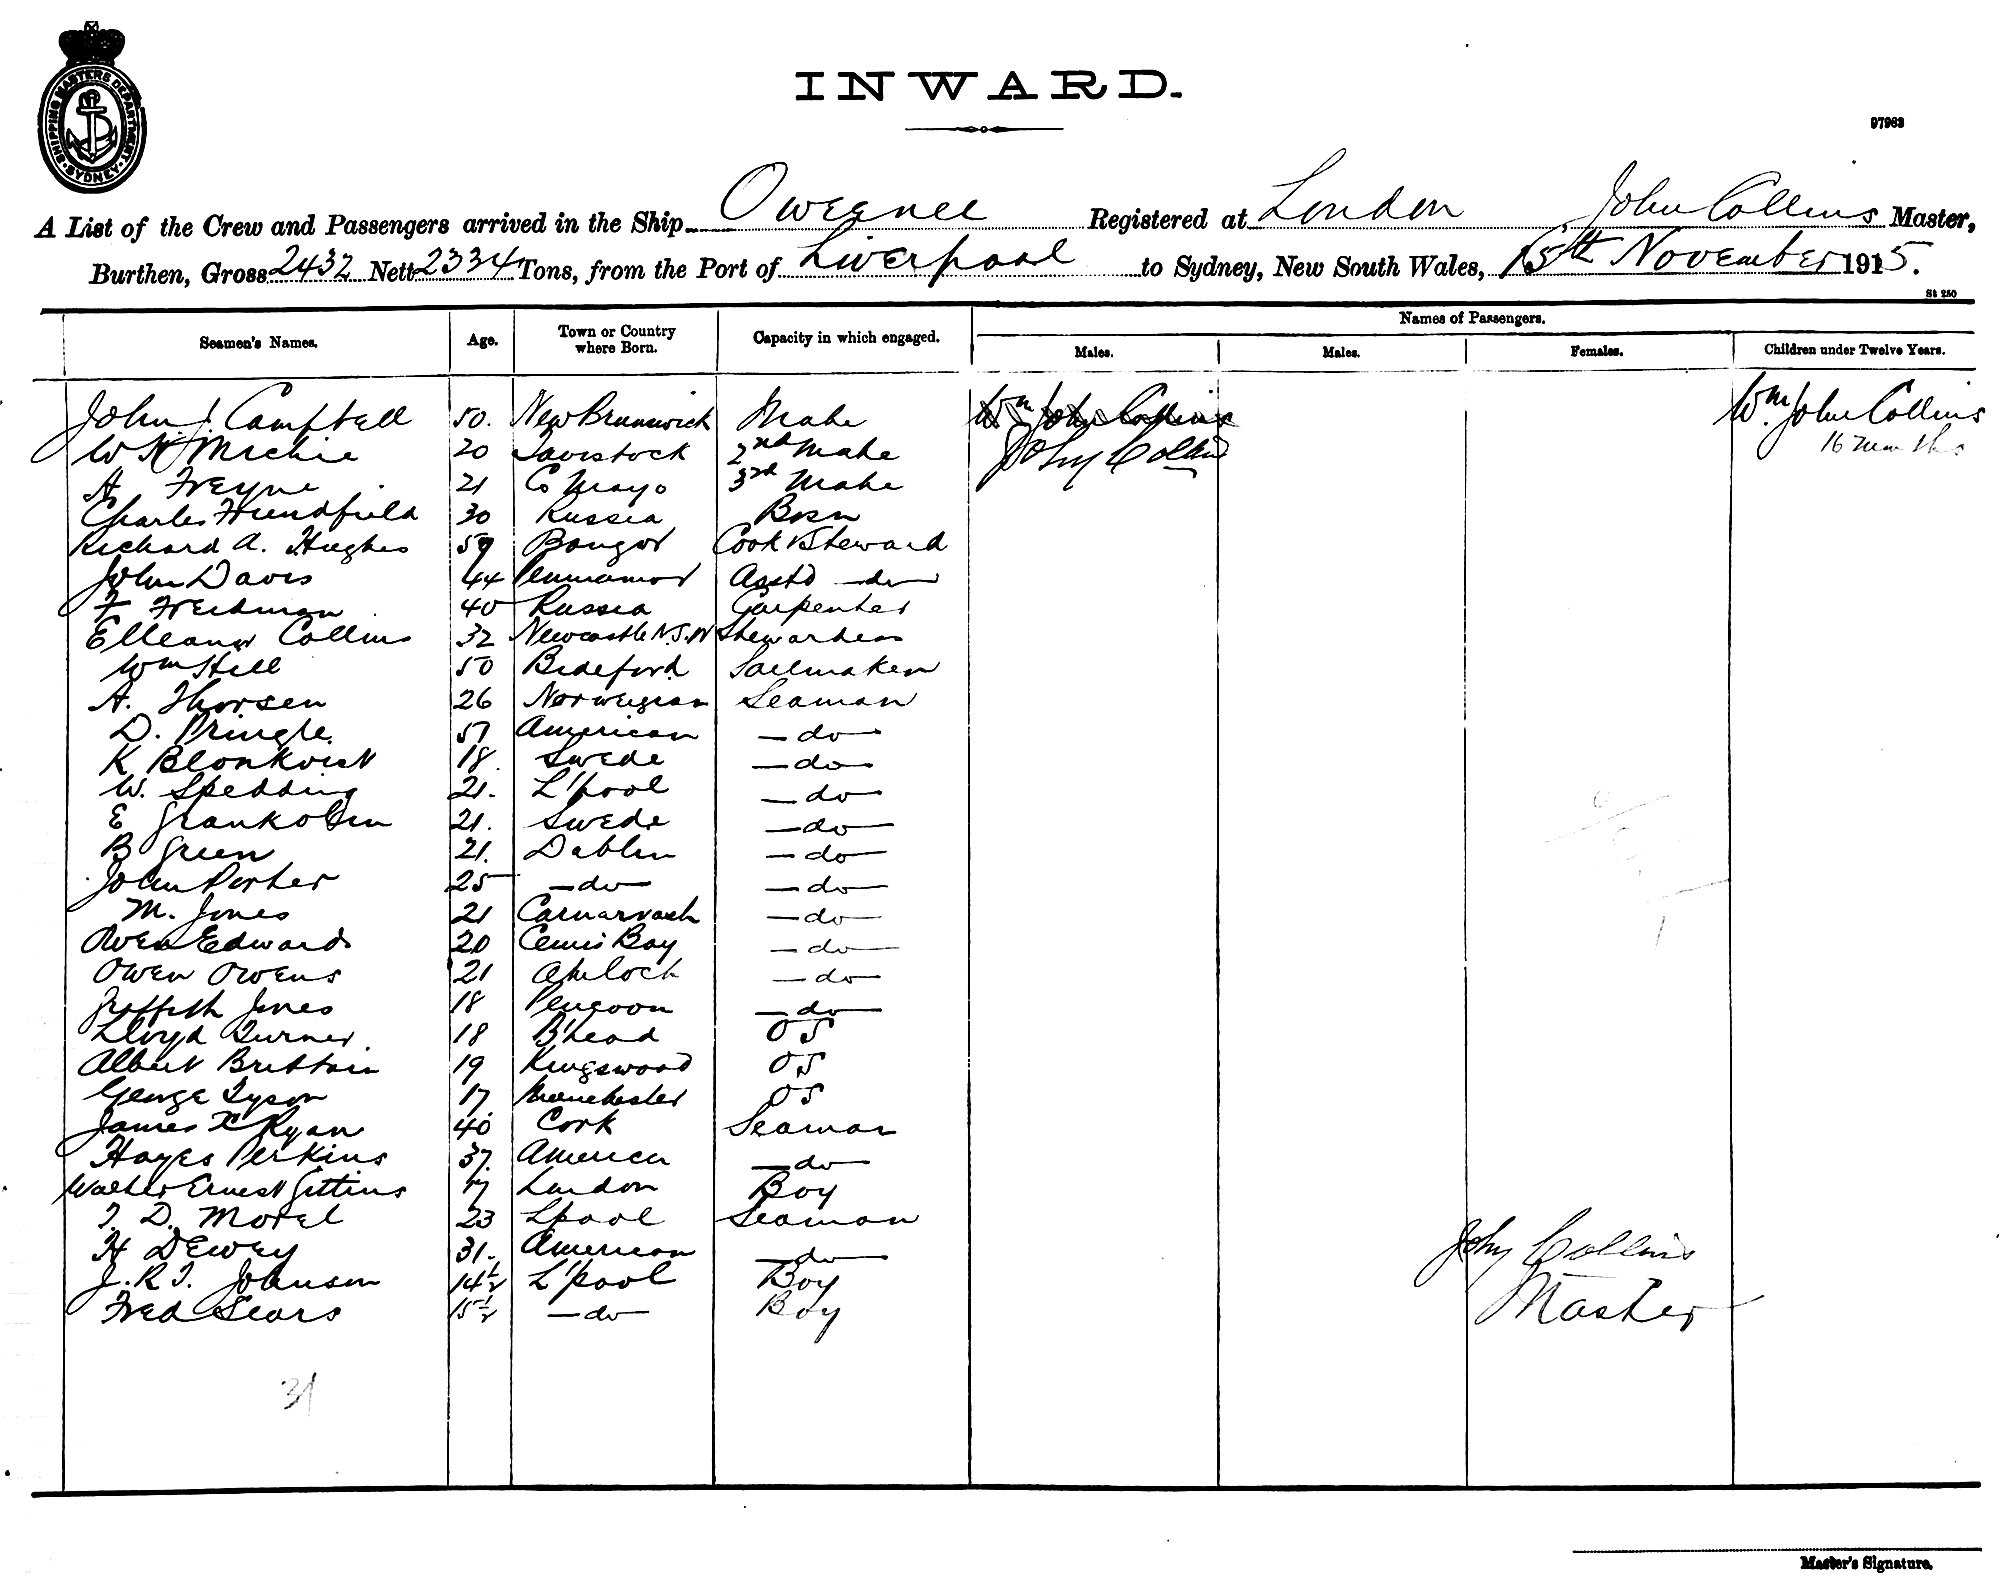 SHIPPING MASTERS DEPARTMENT · SYDNEY ·
INWARD.
97963
A List of the Crew and Passengers arrived in the Ship Oweenee Registered at London John Collins Master,
Burthen, Gross 2432 Nett 2334 Tons, from the Port of Liverpool to Sydney, New South Wales, 15th November 1915.
St 250
Seamen's Names. Age. Town or Country where Born. Capacity in which engaged. Names of Passengers.
Males. Males. Females. Children under Twelve Years.
John J. Campbell 50. New Brunswick Mate Wm John Collins Wm. John Collins
W H Michie 20 Tavistock 2nd Mate John Collins 16 months
A Freyne 21 Co Mayo 3rd Mate
Charles 30 Russia Bosn
Richard A. Hughes 59 Bangor Cook & Steward
John Davis 44 Asstd —do—
F Freidman 40 Russia Carpenter
Elleanor Collins 32 Newcastle N.S.W Stewardess
Wm Hill 50 Bideford Sailmaker
A. Thorsen 26 Norwegian Seaman
D. Pringle 57 American —do—
K Blonkvist 18. Swede —do—
W. Spedding 21. L'pool —do—
E Grankolm 21. Swede —do—
B Green 21. Dublin —do—
John Porter 25 —do— —do—
M. Jones 21 —do—
Owen Edwards 20 Cemis Bay —do—
Owen Owens 21 Amloch —do—
Griffith Jones 18 —do—
Lloyd Turner. 18 B'head OS
Albert Brittain 19 Kingswood OS
George Tyson 17 Manchester OS
James Ryan 40 Cork Seaman
Hayes Perkins 37. America —do—
Walter Ernest Gittins 17 London Boy
T. D. Morel 23 Lpool Seaman
H Dewey 31. American —do— John Collins
J. R. T. Johnson 14½ L'pool Boy Master
Fred Sears 15½ —do— Boy
31
Master's Signature.